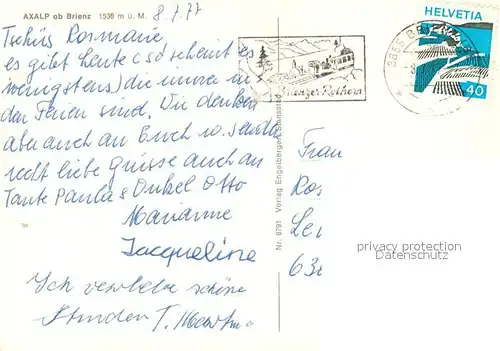 AXALP ob Brienz 1530 m ü. M. 8.7.77
Tschüss Rosmarie
es gibt Leute (so scheint es
wenigstens) die immer in
den Ferien sind. Wir denken
aber auch an Euch u. senden
recht liebe Grüsse auch an
Tante Paula & Onkel Otto
Marianne
Jacqueline
Ich verlebe schöne
Stunden T.
Nr. 9791 Verlag Engelberger, Stansstad
Brienzer Rothorn
3855
HELVETIA
40
Frau
Ros
63
privacy protection
Datenschutz AK Ansichtskarten